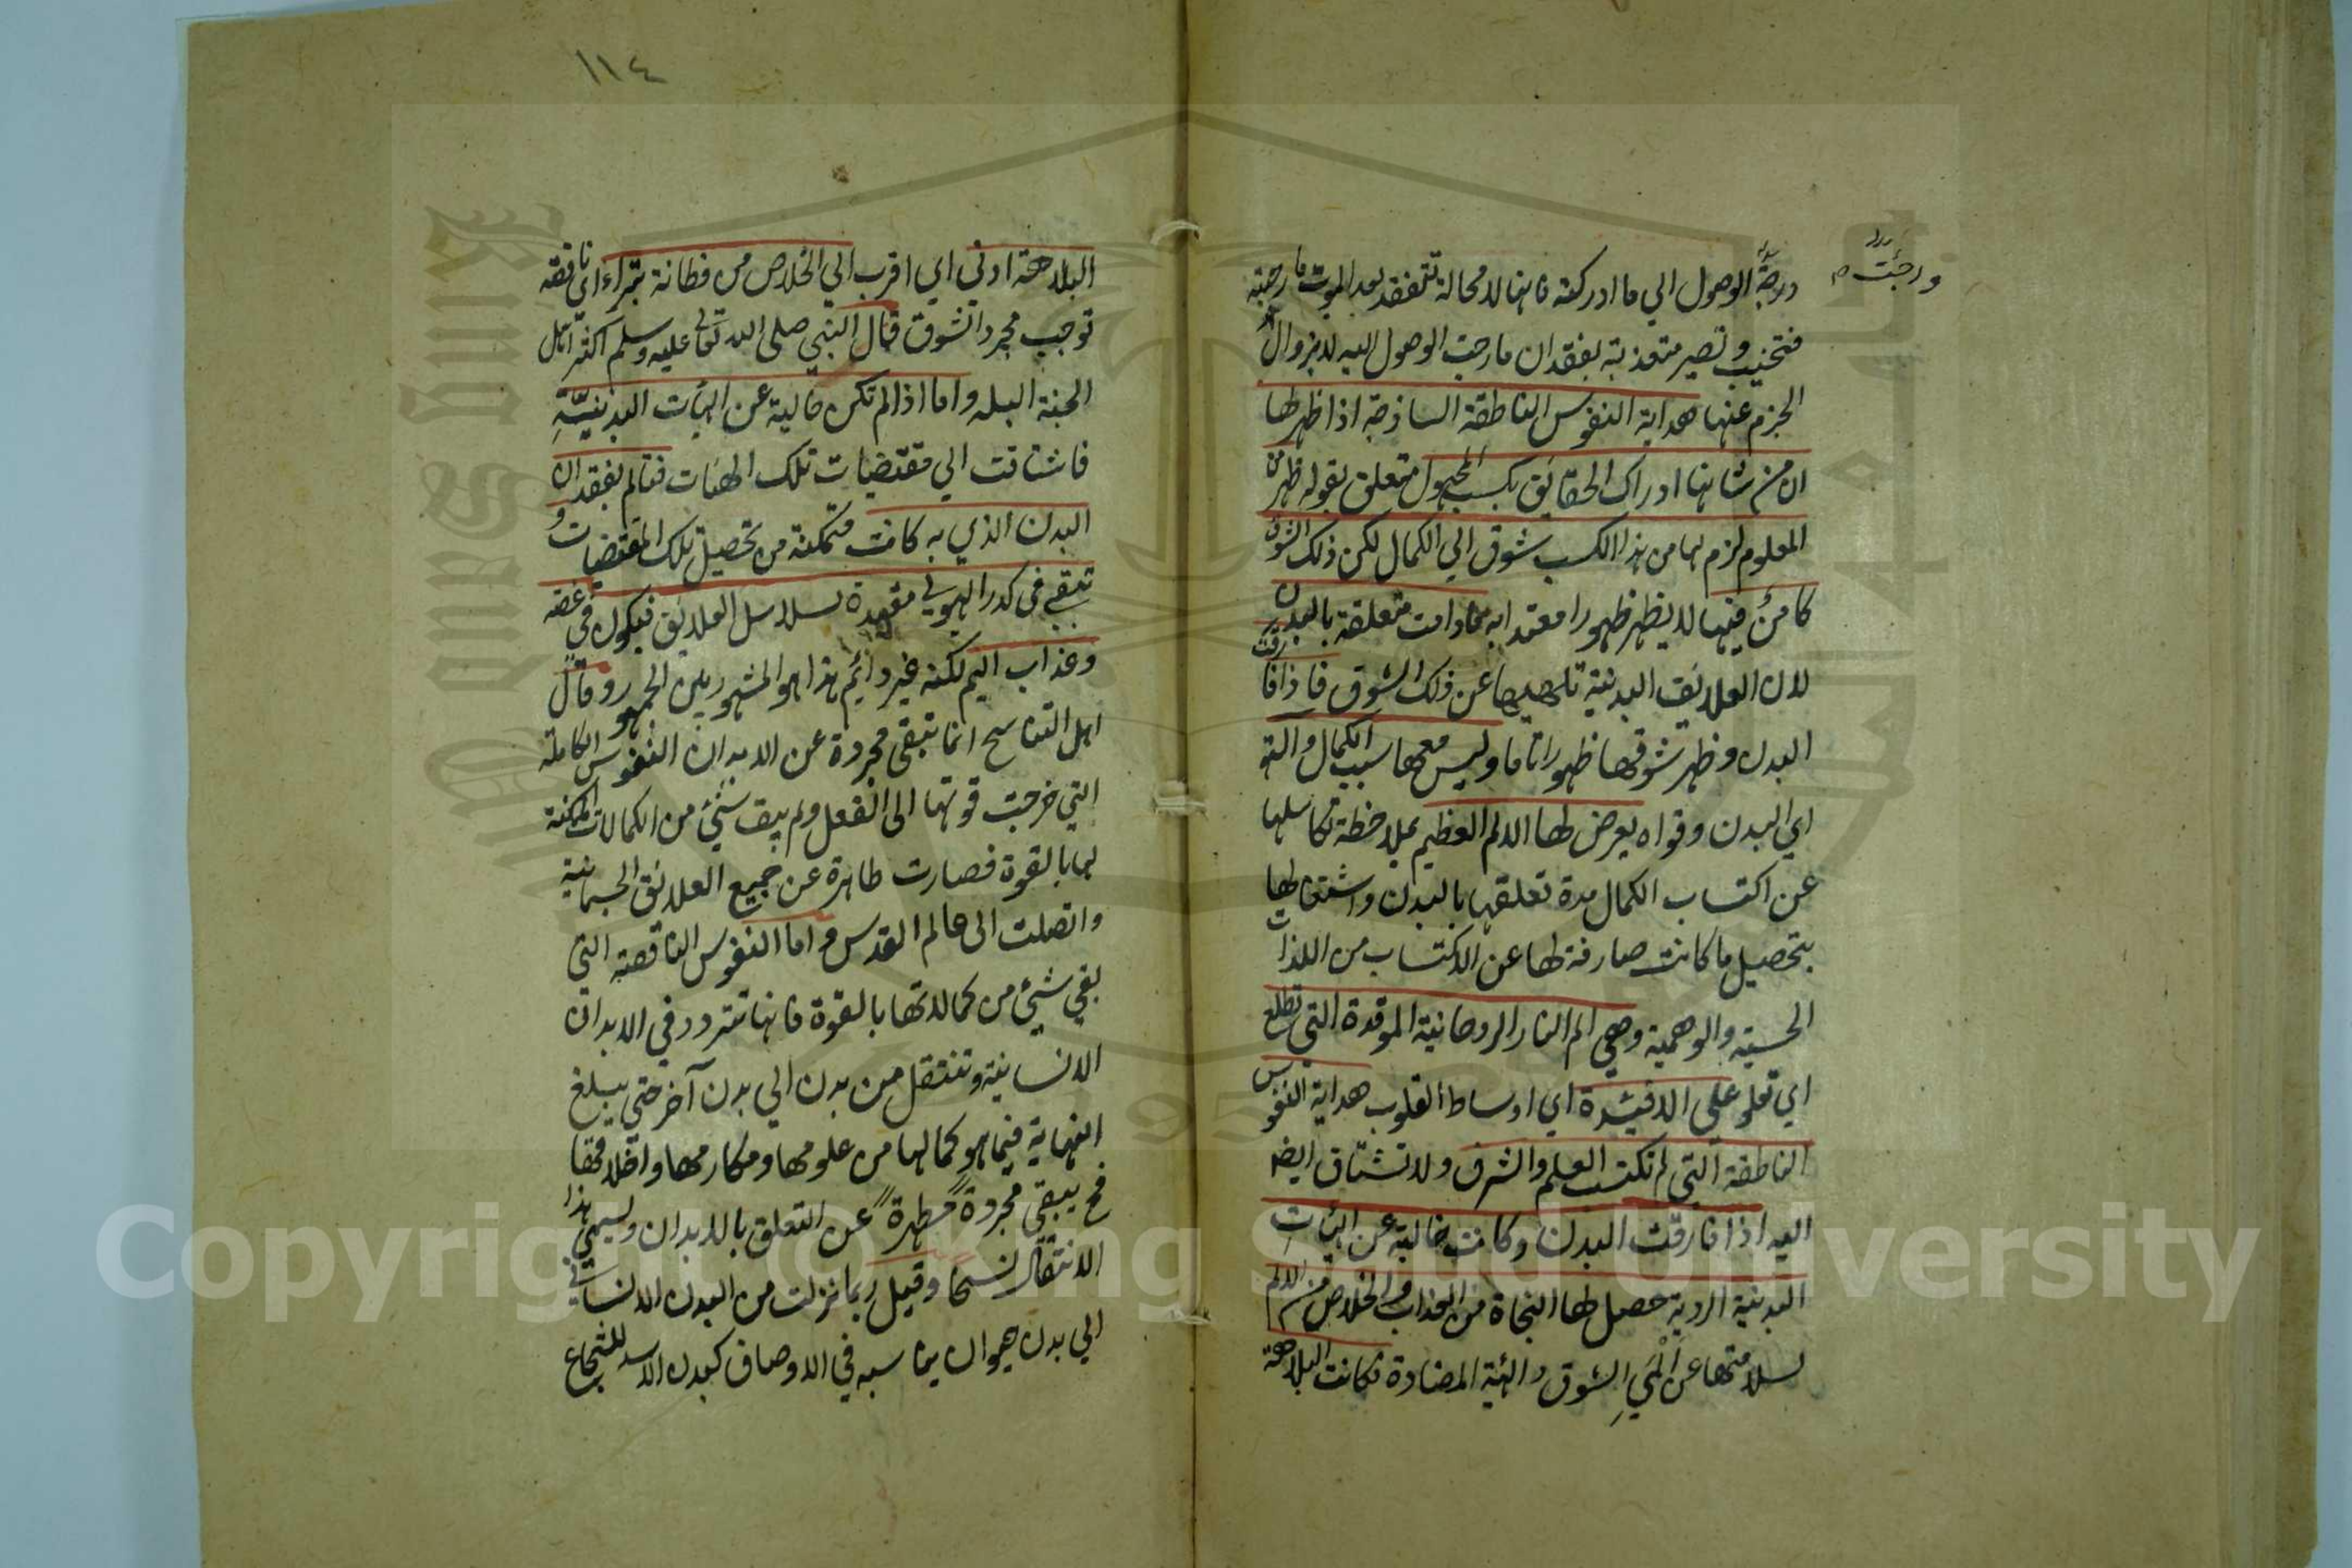 ورجئت م
درجة الوصول الي ما ادركته فانها لا محالة تتفقد بعد الموت ما رجته
فتخيب وتصير متعذبة بفقدان ما رجت الوصول اليه لا بزوال
الجزم عنها هداية النفوس الناطقة الساذجة اذا ظهر لها
ان من شانها ادراك الحقايق بكسب المجهول متعلق بقوله ظهر من
المعلوم لزم لها من هذا الكسب شوق الي الكمال لكن ذلك الشوق
كامن فيها لا يظهر ظهورا معتمدا به ما دامت متعلقة بالبدن
لان العلايق البدنية تلهيها عن ذلك الشوق فاذا فارقت
البدن وظهر شوقها ظهورا تاما وليس معها سبب الكمال والته
اي البدن وقواه يعرض لها الالم العظيم بملاحظة تكاسلها
عن اكتساب الكمال مدة تعلقها بالبدن واشتغالها
بتحصيل ما كانت صارفة لها عن الاكتساب من اللذات
الحسية والوهمية وهي الم النار الروحانية الموقدة التي تطلع
اي تعلو على الافئدة اي اوساط القلوب هداية النفوس
الناطقة التي لم تكتسب العلم والشرف ولا تشتاق ايضا
اليه اذا فارقت البدن وكانت خالية عن الهيات
البدنية الردية حصل لها النجاة من العذاب والخلاص من الالم
لسلامتها عن المي الشوق والهئية المضادة فكانت البلاهة
١١٤
البلاهة ادنى اي اقرب الي الخلاص من فطانة بتراء اي ناقصة
توجب مجرد الشوق قال النبي صلى الله تعالى عليه وسلم اكثر اهل
الجنة البله واما اذا لم تكن خالية عن الهيات البدنية
فاشتاقت الي مقتضيات تلك الهئات فتالم بفقدان
البدن الذي به كانت متمكنة من تحصيل تلك المقتضيات و
تبقي في كدر الهيولي مقيدة بسلاسل العلايق فيكون في غصة
وعذاب اليم لكنه غير دائم هذا هو المشهور بين الجمهور وقال
اهل التناسخ انما تبقى مجردة عن الابدان النفوس الكاملة
التي خرجت قوتها الى الفعل ولم يبق شئ من الكمالات الممكنة
لها بالقوة فصارت طاهرة عن جميع العلائق الجسمانية
واتصلت الى عالم القدس واما النفوس الناقصة التي
بقي شئ من كمالاتها بالقوة فانها تتردد في الابدان
الانسانية وتنتقل من بدن الي بدن آخر حتي يبلغ
النهاية فيما هو كمالها من علومها ومكارمها واخلاقها
فح يبقي مجردة مطهرة عن التعلق بالابدان ويسمي هذا
الانتقال نسخا وقيل ربما نزلت من البدن الانساني
الي بدن حيوان يناسبه في الاوصاف كبدن الاسد للشجاع
Copyright © King Saud University